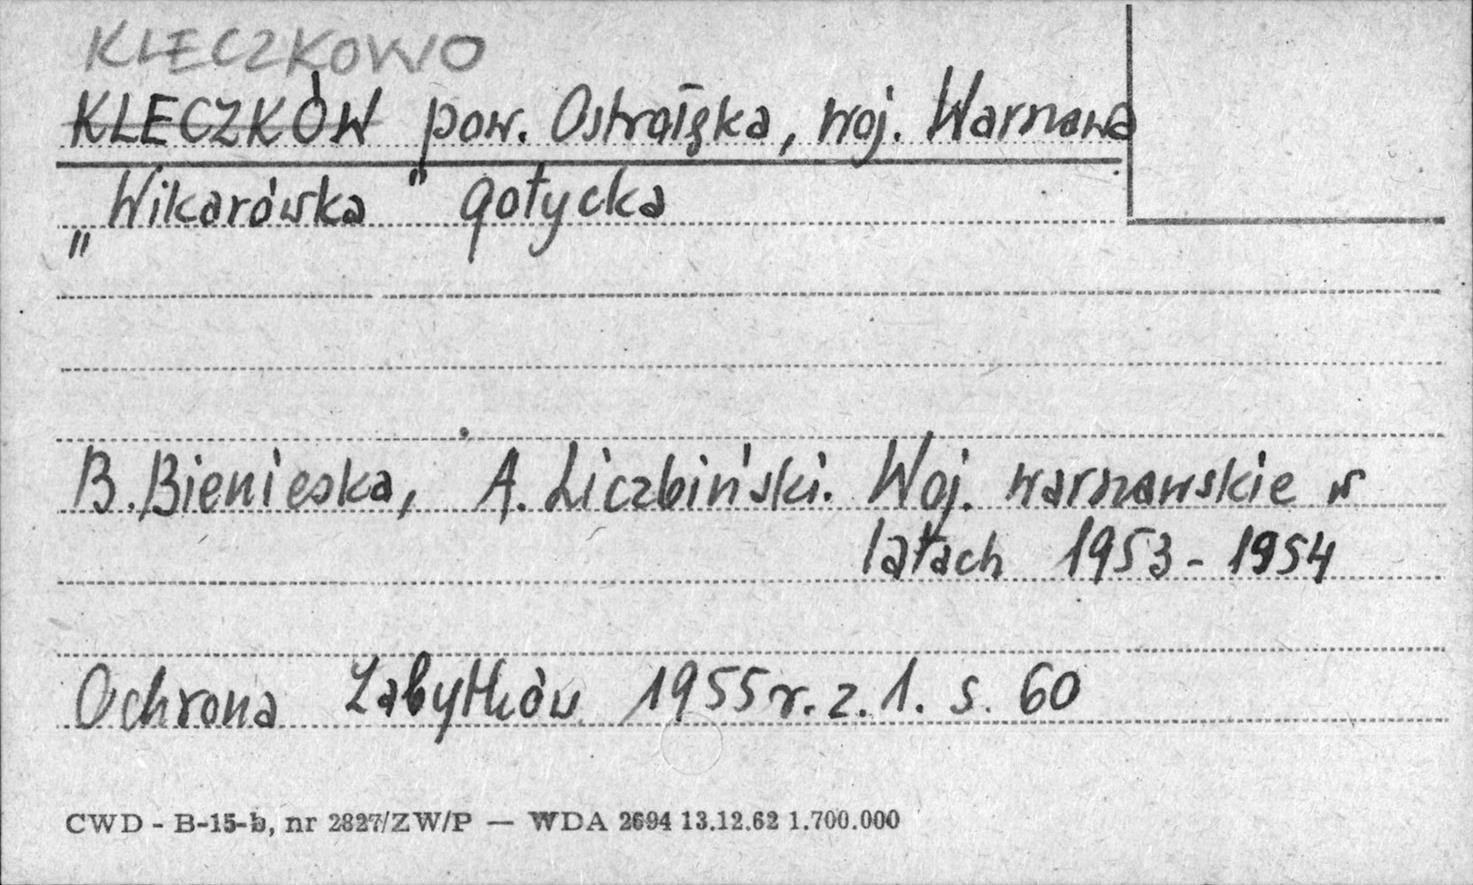 KLECZKOWO
KLECZKÓW pow. Ostrołęka, woj. Warszawa
„Wikarówska" gotycka
B. Bienieska, A. Liczbiński. Woj. warszawskie w
latach 1953-1954
Ochrona Zabytków 1955 r. z. 1. s. 60
CWD - B-15-b, nr 2827/ZW/P — WDA 2694 13.12.62 1.700.000